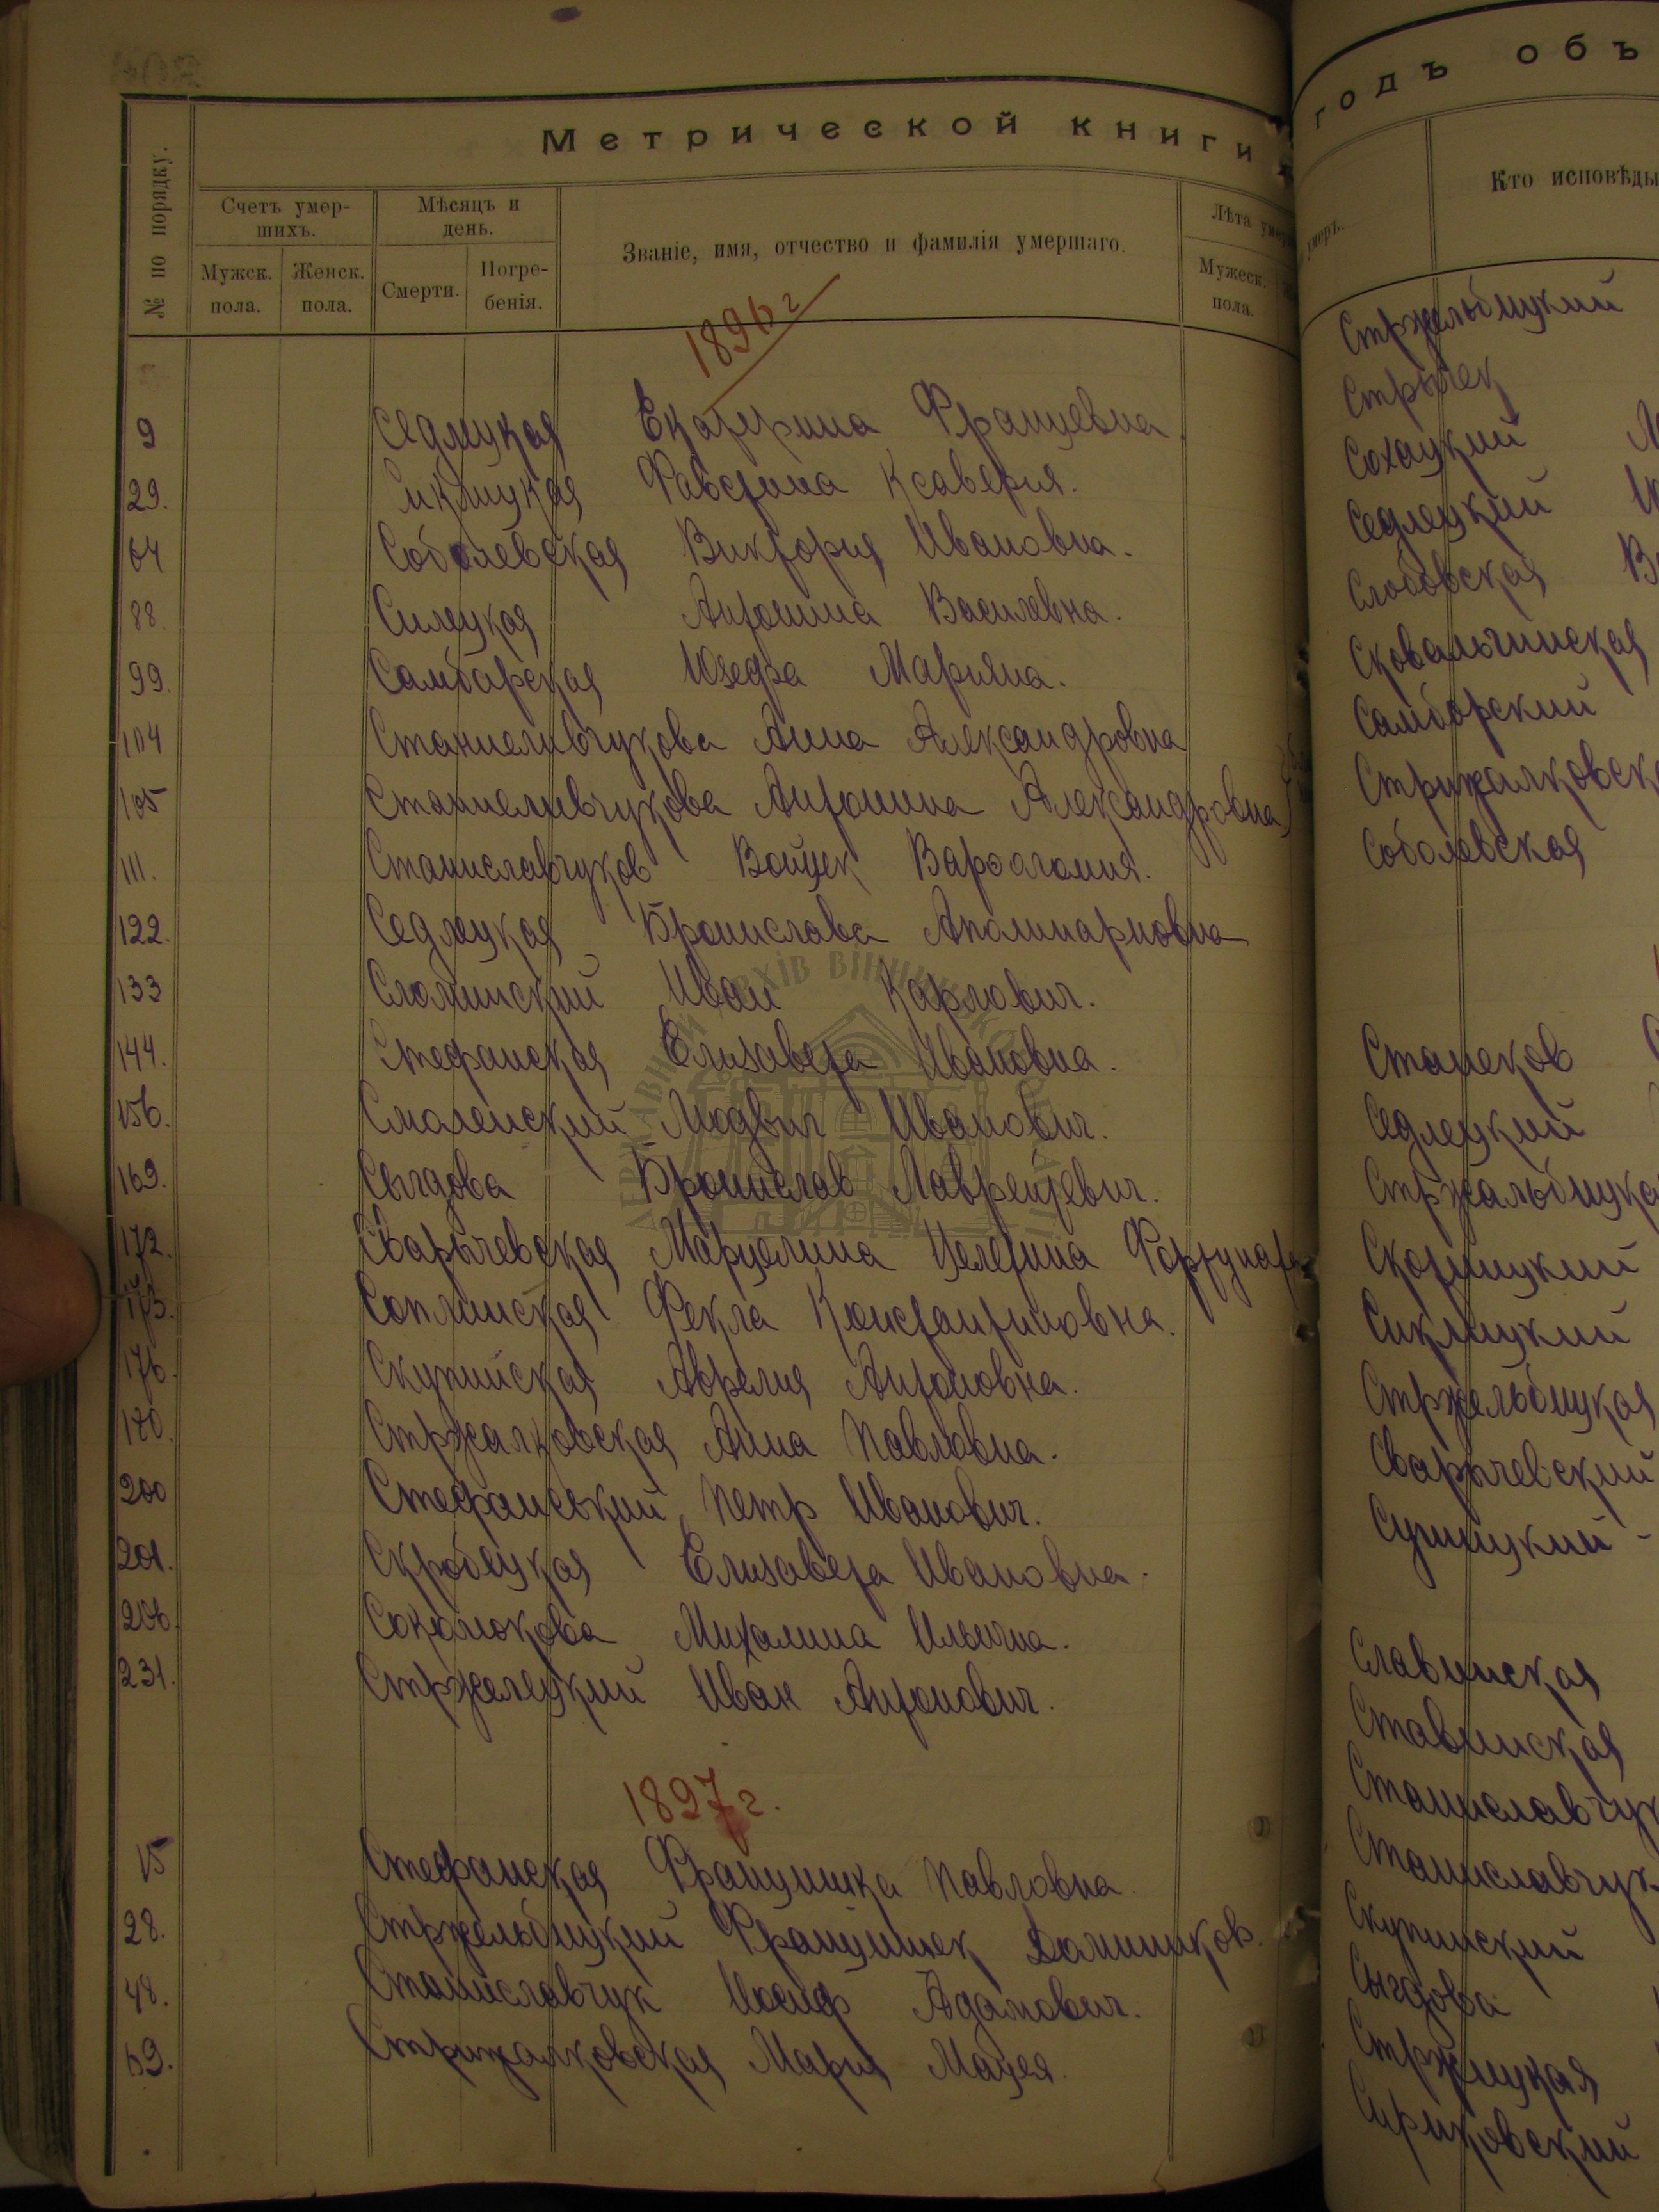 Метрической книги
№ по порядку.
Счетъ умер-
шихъ.
Мужск.
пола.
Женск.
пола.
Мѣсяцъ и
день.
Смерти.
Погре-
бенія.
Званіе, имя, отчество и фамилія умершаго.
Лѣта
Мужеск.
пола.
1896 г
9 Седлецкая Екатерина Францевна
29. Сиклицкая Фавстина Ксаверия.
64 Соболевская Виктория Ивановна.
88. Силецкая Антонина Василевна.
99. Самборская Юзефа Марияна.
104 Станиславчукова Анна Александровна
105 Станиславчукова Антонина Александровна
111. Станиславчуков Войцек Варфоломия.
122. Седлецкая Бронислава Аполинариовна
133 Сломинский Иван Карлович.
144. Стефанская Елизавета Ивановна.
156. Смоленский Людвиг Иванович.
169. Сыгдова Бронислав Лаврентевич.
172. Сварычевская Марцелина Целетина
173. Соплинская Фекла Константиновна.
176. Скупинская Аврелия Антоновна.
180. Стржалковская Анна Павловна.
200 Стефанський Петр Иванович.
201. Скробецкая Елизавета Ивановна.
206. Соколюкова Михалина Ильична.
231. Стржелецкий Иван Антонович.
1897 г.
15 Стефанская Францишка Павловна.
28. Стржельбицкий Францишек Домиников.
48. Станиславчук Иосиф Адамович.
69. Стрижалковская Мария Мацея.
годъ объ
Кто исповѣды
умеръ.
Стржельбицкий
Стрычек
Сохацкий
Седлецкий
Слободская
Сковальчинская
Самборский
Стрижалковск
Соболевская
Станеков
Седлецкий
Стржальбицка
Скотницкий
Сиклицкий
Стржельбицкая
Сварычевский
Сушицкий
Славинская
Ставинская
Станиславчук
Станиславчук
Скупинский
Сыгдова
Стржицкая
Сириковский
ДЕРЖАВНИЙ АРХІВ ВІННИЦЬКОЇ ОБЛАСТІ